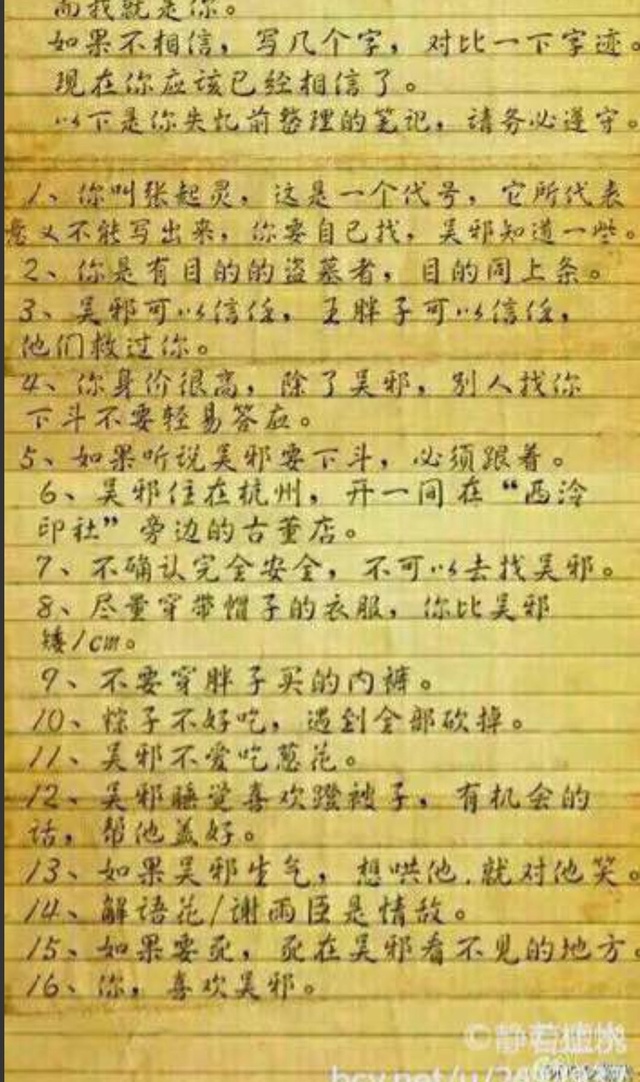 而我就是你。
如果不相信，写几个字，对比一下字迹。
现在你应该已经相信了。
以下是你失忆前整理的笔记，请务必遵守。
1、你叫张起灵，这是一个代号，它所代表
意义不能写出来，你要自己找，吴邪知道一些。
2、你是有目的的盗墓者，目的同上条。
3、吴邪可以信任，王胖子可以信任，
他们救过你。
4、你身价很高，除了吴邪，别人找你
下斗不要轻易答应。
5、如果听说吴邪要下斗，必须跟着。
6、吴邪住在杭州，开一间在“西泠
印社”旁边的古董店。
7、不确认完全安全，不可以去找吴邪。
8、尽量穿带帽子的衣服，你比吴邪
矮1cm。
9、不要穿胖子买的内裤。
10、粽子不好吃，遇到全部砍掉。
11、吴邪不爱吃葱花。
12、吴邪睡觉喜欢蹬被子，有机会的
话，帮他盖好。
13、如果吴邪生气，想哄他，就对他笑。
14、解语花/谢雨臣是情敌。
15、如果要死，死在吴邪看不见的地方。
16、你，喜欢吴邪。
©静若
bcy.net/u/